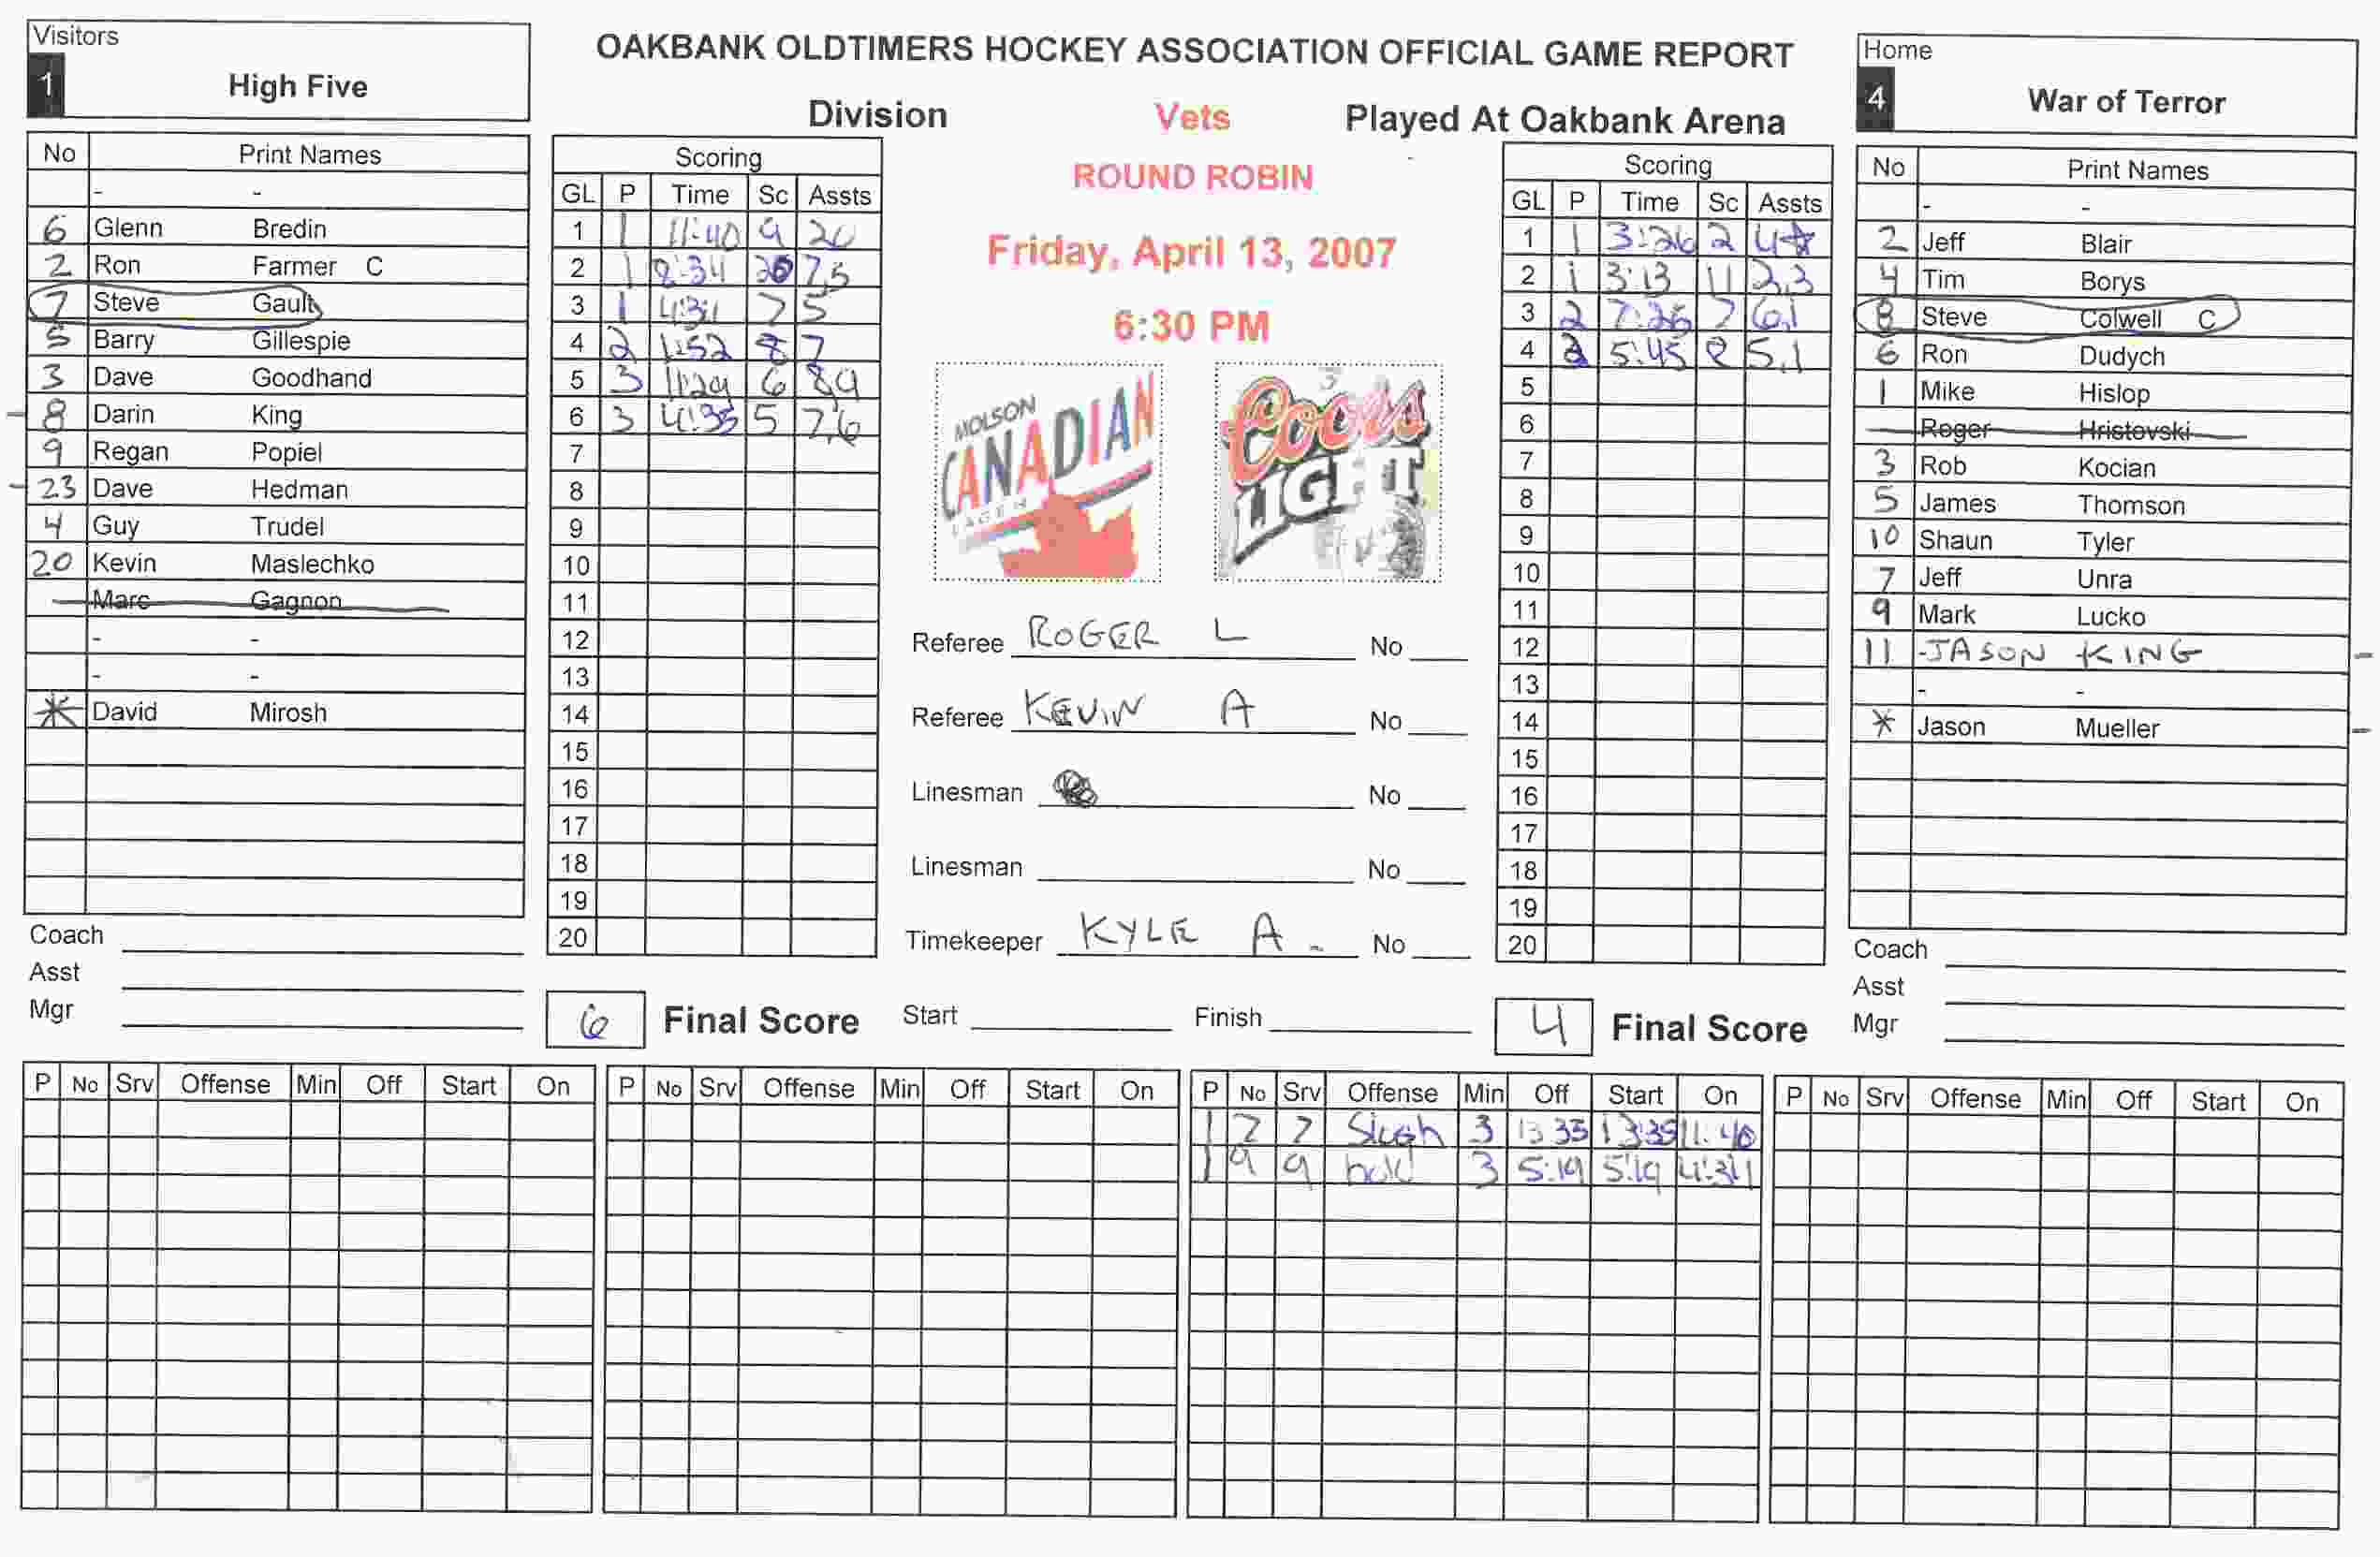 Visitors
1 High Five
OAKBANK OLDTIMERS HOCKEY ASSOCIATION OFFICIAL GAME REPORT
Division Vets Played At Oakbank Arena
ROUND ROBIN
Friday, April 13, 2007
6:30 PM
Home
4 War of Terror
No Print Names
- -
6 Glenn Bredin
2 Ron Farmer C
7 Steve Gault
5 Barry Gillespie
3 Dave Goodhand
8 Darin King
9 Regan Popiel
23 Dave Hedman
4 Guy Trudel
20 Kevin Maslechko
Marc Gagnon
- -
- -
* David Mirosh
Coach
Asst
Mgr
Scoring
GL P Time Sc Assts
1 1 11:40 9 20
2 1 8:34 20 7,5
3 1 4:34 7 5
4 2 1:52 8 7
5 3 11:29 6 8,9
6 3 4:35 5 7,6
7
8
9
10
11
12
13
14
15
16
17
18
19
20
6 Final Score
MOLSON
CANADIAN
LAGER
Coors
LIGHT
Referee ROGER L No
Referee KEVIN A No
Linesman No
Linesman No
Timekeeper KYLE A. No
Start Finish
Scoring
GL P Time Sc Assts
1 1 3:26 2 4
2 1 3:13 11 2,3
3 2 7:26 7 6,1
4 2 5:45 5,1
5
6
7
8
9
10
11
12
13
14
15
16
17
18
19
20
4 Final Score
No Print Names
- -
2 Jeff Blair
4 Tim Borys
8 Steve Colwell C
6 Ron Dudych
1 Mike Hislop
Roger Hristovski
3 Rob Kocian
5 James Thomson
10 Shaun Tyler
7 Jeff Unra
9 Mark Lucko
11 JASON KING
- -
* Jason Mueller
Coach
Asst
Mgr
P No Srv Offense Min Off Start On
P No Srv Offense Min Off Start On
P No Srv Offense Min Off Start On
1 7 7 Slash 3 13:35 13:35 11:40
1 9 9 hold 3 5:19 5:19 4:34
P No Srv Offense Min Off Start On